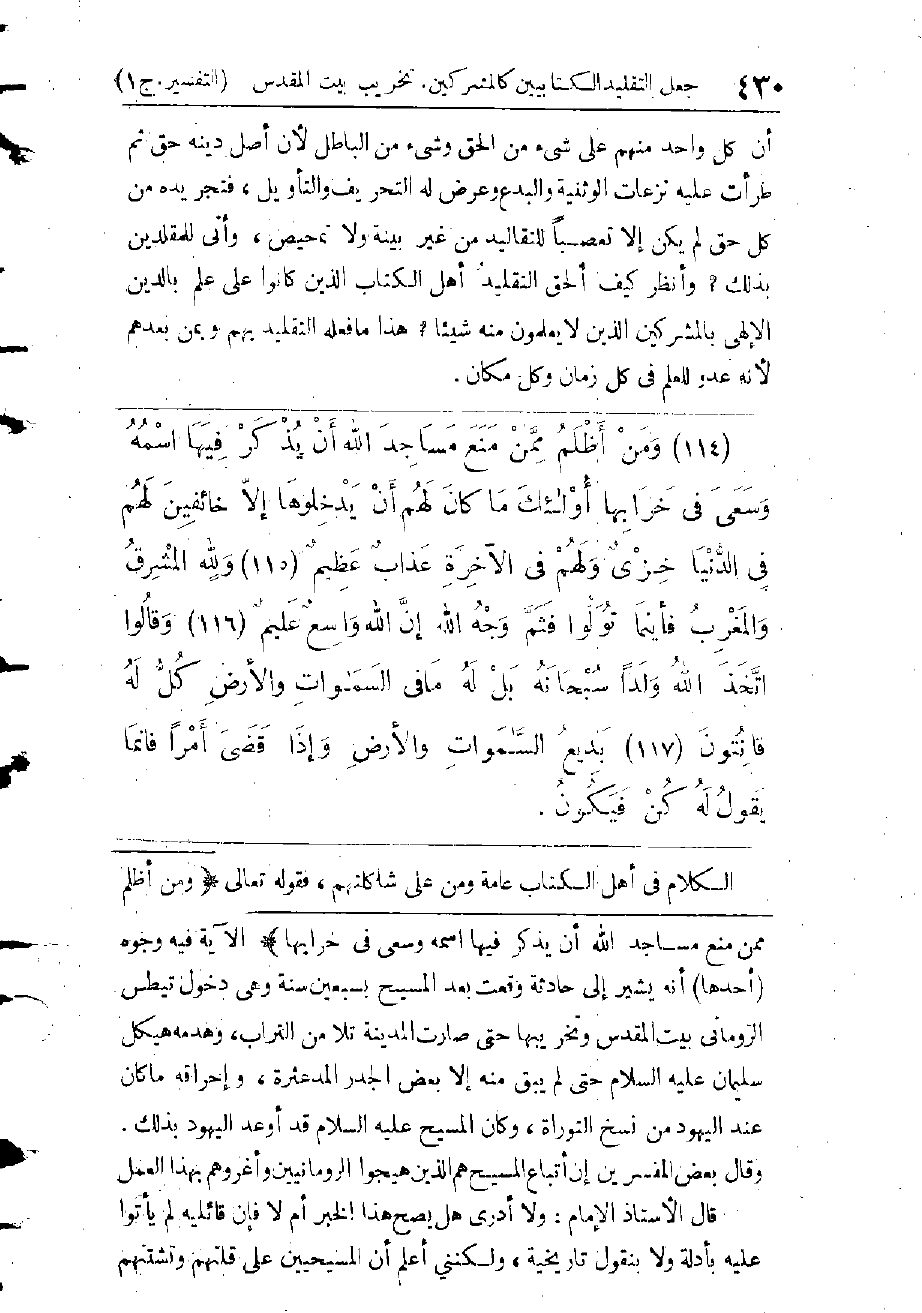 ٤٣٠ جعل التقليد الكتابيين كالمشركين. تخريب بيت المقدس (التفسير. ج١)
أن كل واحد منهم على شىء من الحق وشىء من الباطل لأن أصل دينه حق ثم
طرأت عليه نزعات الوثنية والبدع وعرض له التحريف والتأويل ، فتجريده من
كل حق لم يكن إلا تعصباً للتقاليد من غير بينة ولا تمحيص ، وأنى للمقلدين
بذلك ؟ وأنظر كيف ألحق التقليدُ أهل الكتاب الذين كانوا على علم بالدين
الإلهى بالمشركين الذين لا يعلمون منه شيئا ؟ هذا ما فعله التقليد بهم وبمن بعدهم
لأنه عدو للعلم فى كل زمان وكل مكان .
(١١٤) وَمَنْ أَظْلَمُ مِمَّنْ مَنَعَ مَسَاجِدَ اللهِ أَنْ يُذْكَرَ فِيهَا اسْمُهُ
وَسَعَىَ فى خَرَابِها أُوْلَـٰئِكَ مَا كانَ لَهُم أَنْ يَدْخلوهَا إلاّ خائفِينَ لَهُم
فِي الدُّنْيَا خِزْىٌ وَلَهُمْ فى الآخِرَةِ عَذَابٌ عَظِيمٌ (١١٥) وَلِلهِ المْشْرِقُ
وَالمَغْرِبُ فأينما تُوَلُّوا فَثَمَّ وَجْهُ اللهِ إنَّ اللهَ وَاسعٌ عَليمٌ (١١٦) وَقَالُوا
اتَّخَذَ اللهُ وَلَداً سُبْحَانَهُ بَلْ لَهُ مَافى السَمَـٰوَاتِ والأرْضِ كُلٌّ لَهُ
قانِتُونَ (١١٧) بَدِيعُ السَّـٰمَواتِ والأرضِ وَإذَا قَضَىَ أَمْراً فانمَا
يَقولُ لَهُ كُنْ فَيَكُونُ .
الكلام فى أهل الكتاب عامة ومن على شاكلتهم ، فقوله تعالى ﴿ ومن أظلم
ممن منع مساجد الله أن يذكر فيها اسمه وسعى فى خرابها ﴾ الآية فيه وجوه
(أحدها) أنه يشير إلى حادثة وقعت بعد المسيح بسبعين سنة وهى دخول تيطس
الرومانى بيت المقدس وتخريبها حتى صارت المدينة تلا من التراب، وهدمه هيكل
سليمان عليه السلام حتى لم يبق منه إلا بعض الجدر المدعثرة ، وإحراقه ما كان
عند اليهود من نسخ التوراة ، وكان المسيح عليه السلام قد أوعد اليهود بذلك .
وقال بعض المفسرين إن أتباع المسيح هم الذين هيجوا الرومانيين وأغروهم بهذا العمل
قال الأستاذ الإمام : ولا أدرى هل يصح هذا الخبر أم لا فإن قائليه لم يأتوا
عليه بأدلة ولا بنقول تاريخية ، ولكنني أعلم أن المسيحيين على قلتهم وتشتتهم